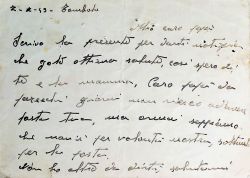 2-8-43 Tombolo
Mio caro papà
Scrivo la presente per darti notizie
che godo ottima salute, così spero di
te e la mamma, Caro papà da
parecchi giorni non ricevo
posta tua, ma ormai sappiamo
che non è per volontà nostra
per la posta.
Non ho altro da dirti, salutami